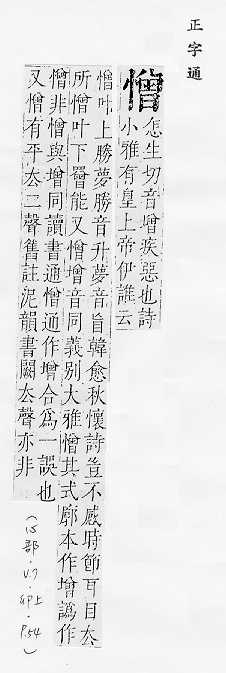 正字通
憎 怎生切音增疾惡也詩
小雅有皇上帝伊誰云
憎叶上勝夢勝音升夢音旨韓愈秋懷詩豈不感時節耳目厺
所憎叶下能又憎增音同義別大雅憎其式廓本作增譌作
憎非憎與增同讀書通憎通作增合爲一誤也
又憎有平厺二聲舊註泥韻書闕厺聲亦非
(心部．V.7．卯上．P.54)